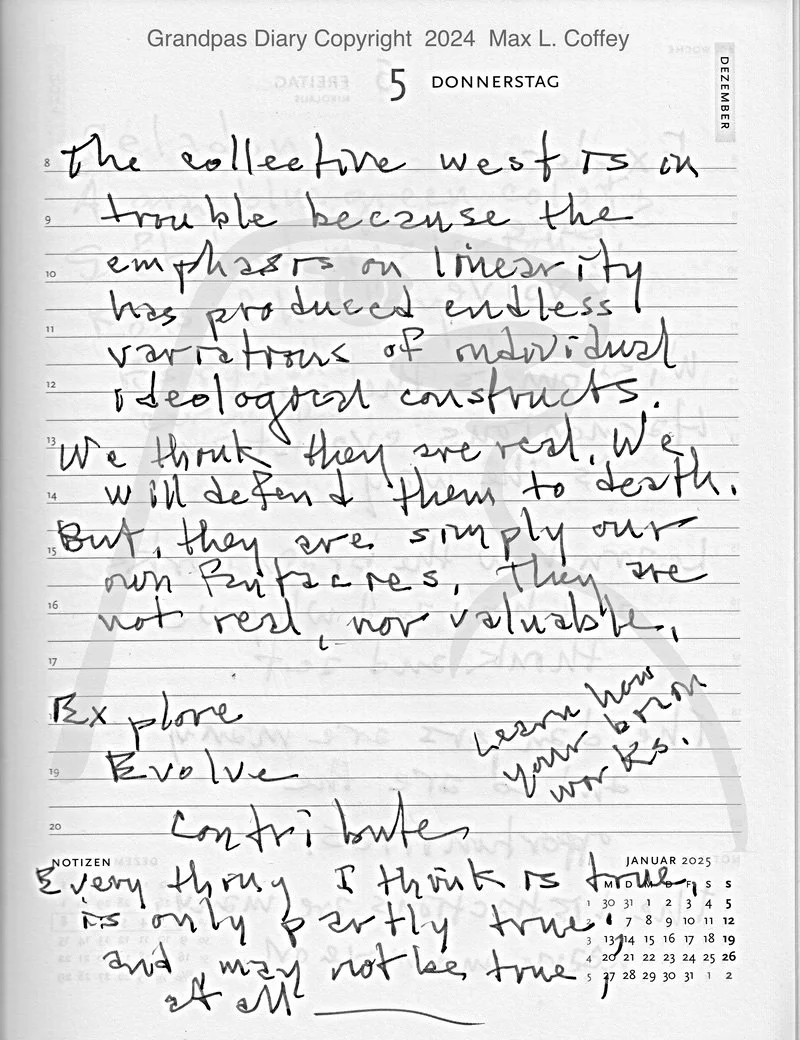 Grandpas Diary Copyright 2024 Max L. Coffey
5 DONNERSTAG
DEZEMBER
8 The collective west is in
9 trouble because the
10 emphasis on linearity
has produced endless
11 variations of individual
12 ideological constructs.
13 We think they are real. We
14 will defend them to death.
But, they are simply our
15 own fantacies, they are
16 not real, nor valuable.
17
Explore
Learn how
your brain
works.
19 Evolve
20 Contribute
NOTIZEN
JANUAR 2025
Every thing I think is true,
is only partly true,
and may not be true
at all
M D M D F S S
1 30 31 1 2 3 4 5
7 8 9 10 11 12
3 13 14 15 16 17 18 19
4 20 21 22 23 24 25 26
5 27 28 29 30 31 1 2